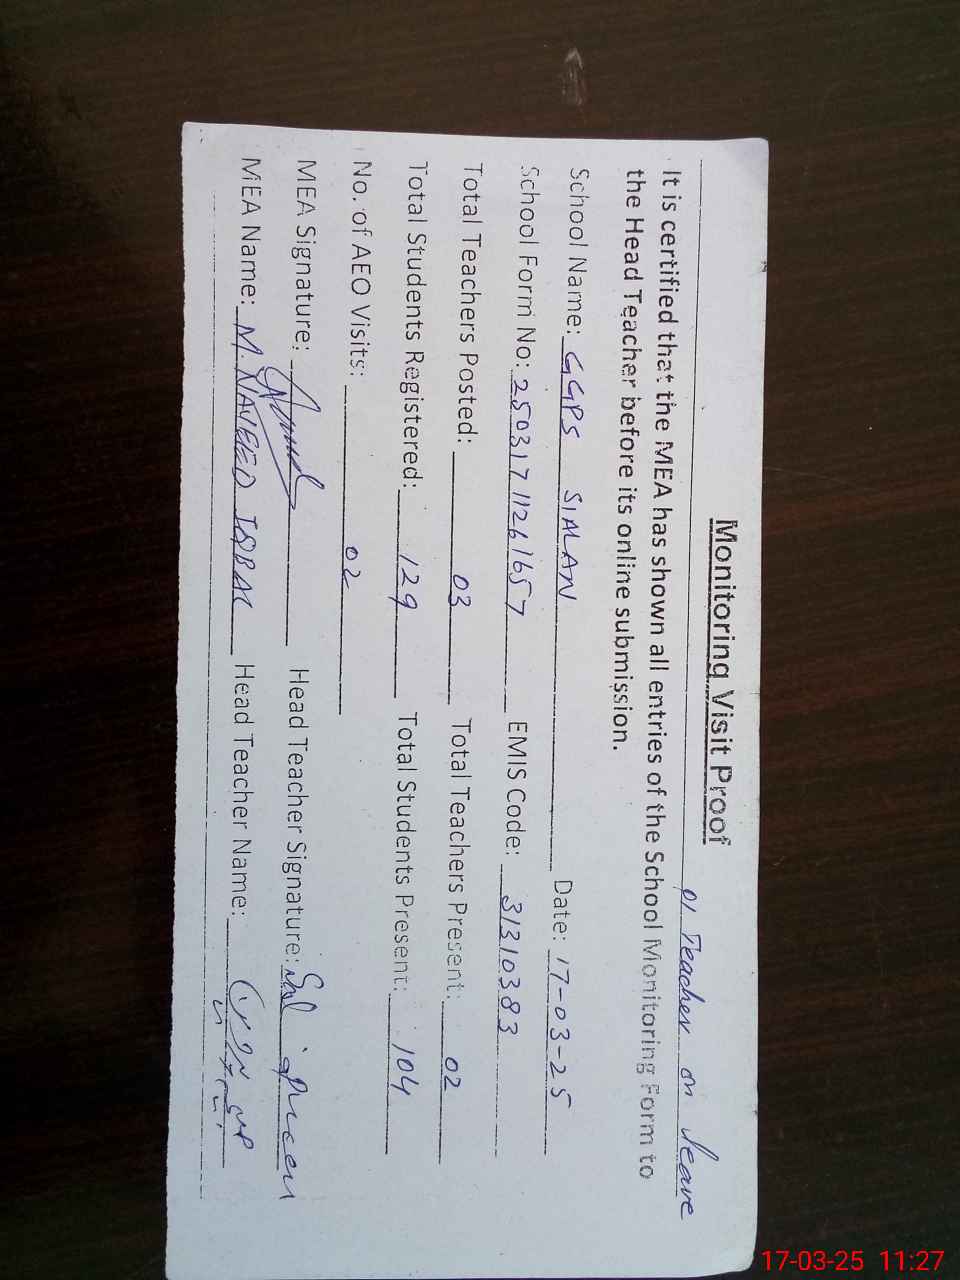 Monitoring Visit Proof
01 Teacher on leave
It is certified that the MEA has shown all entries of the School Monitoring Form to
the Head Teacher before its online submission.
School Name: GGPS SIALAN Date: 17-03-25
School Form No: 250317 1126 1657 EMIS Code: 31310383
Total Teachers Posted: 03 Total Teachers Present: 02
Total Students Registered: 129 Total Students Present: 104
No. of AEO Visits: 02
MEA Signature: Head Teacher Signature:
MEA Name: M. NAVEED IQBAL Head Teacher Name:
17-03-25 11:27